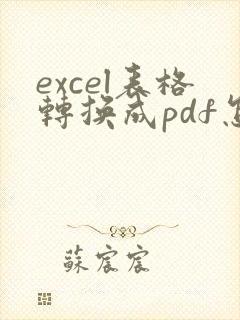 excel表格
轉換成pdf怎
蘇宸宸